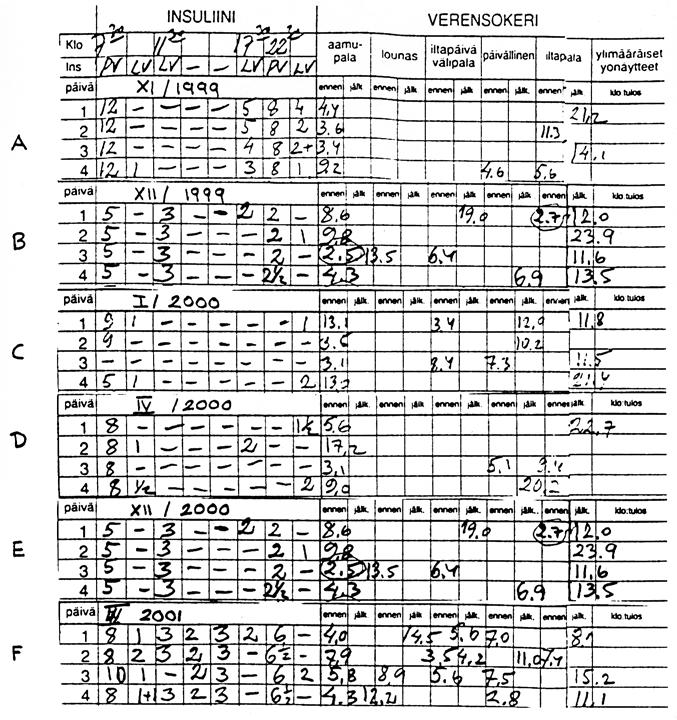 INSULIINI VERENSOKERI
Klo 7³⁰ 11³⁰ 17³⁰ 22³⁰ aamupala lounas iltapäivä välipala päivällinen iltapala ylimääräiset yönäytteet
Ins PV LV LV – – LV PV LV
päivä XI / 1999 ennen jälk ennen jälk ennen jälk ennen jälk ennen jälk klo tulos
A
1 12 – – – – 5 8 4 4,4 21,2
2 12 – – – – 5 8 2 3.6 11.3
3 12 – – – – 4 8 2+ 3.4 14,1
4 12 1 – – – 3 8 1 9.2 4.6 5.6
päivä XII / 1999 ennen jälk ennen jälk ennen jälk ennen jälk ennen jälk klo tulos
B
1 5 – 3 – – 2 2 – 8.6 19.0 2.7 12.0
2 5 – 3 – – – 2 1 9.8 23.9
3 5 – 3 – – – 2 – 2.5 13.5 6.4 11.6
4 5 – 3 – – – 2½ – 4.3 6.9 13.5
päivä I / 2000 ennen jälk. ennen jälk. ennen jälk. ennen jälk. ennen jälk. klo tulos
C
1 9 1 – – – – – 1 13.1 3.4 12,9 11.8
2 9 – – – – – – – 10.2
3 – – – – – – – 3.1 8.4 7.3 11.5
4 5 1 – – – – – 2
päivä IV / 2000 ennen jälk. ennen jälk. ennen jälk. ennen jälk. ennen jälk. klo tulos
D
1 8 – – – – – – 1½ 5.6 22.7
2 8 1 – – – 2 – – 17,2
3 8 – – – – – – – 3,1 5,1
4 8 ½ – – – – – 2 9,0 20,2
päivä XII / 2000 ennen jälk. ennen jälk. ennen jälk. ennen jälk. ennen jälk. klo tulos
E
1 5 – 3 – – 2 2 – 8.6 19.0 2.7 12.0
2 5 – 3 – – – 2 1 9.8 23.9
3 5 – 3 – – – 2 – 2.5 13.5 6.4 11.6
4 5 – 3 – – – 2½ – 4.3 6.9 13.5
päivä 2001 ennen jälk. ennen jälk. ennen jälk. ennen jälk. ennen jälk. klo tulos
F
1 8 1 3 2 3 2 6 – 4,0 14.5 5.0 7,0 8.1
2 8 2 3 2 3 – 6½ – 7,9 3,5 4,2 11.0 7,4
3 10 1 – 2 3 – 6 2 5,8 8,9 5.6 7,5 15.2
4 8 1+1 3 2 3 – 6½ – 4.3 12,2 2.8 11,1